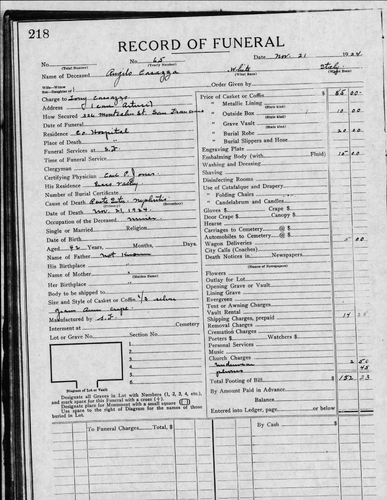 218
RECORD OF FUNERAL
No. (Total Number) No. 65 (Yearly Number) Date Nov. 21 1924
Name of Deceased Angelo White (What Race) Italy (Where Born)
Wife—Widow
Son—Daughter of Order Given by
Charge to Tony
Address
How Secured 226 Montcalm St. San Francisco
Date of Funeral
Residence Co. Hospital
Place of Death
Funeral Services at S.F.
Time of Funeral Service
Clergyman
Certifying Physician Carl P. Jones
His Residence Grass Valley
Number of Burial Certificate
Cause of Death Acute Nephritis
Date of Death Nov. 21, 1924
Occupation of Deceased miner
Single or Married Religion
Date of Birth
Aged 42 Years, Months, Days.
Name of Father not known
His Birthplace
Name of Mother (Maiden Name)
Her Birthplace "
Body to be shipped to
Size and Style of Casket or Coffin 6/3 silver
crape
Manufactured by S.F.
Interment at Cemetery
Lot or Grave No. Section No.
1.
2.
3.
4.
5.
6.
Diagram of Lot or Vault
Designate all Graves in Lot with Numbers (1, 2, 3, 4, etc.)
and mark space for this Funeral with a cross (+).
Designate place for Monument with a small square
Use space to the right of Diagram for the names of those
buried in Lot.
Price of Casket or Coffin $ 85 00
" Metallic Lining (State Kind)
" Outside Box (State Kind) 10 00
" Grave Vault (State Kind)
" Burial Robe (State Kind) 20 00
" Burial Slippers and Hose
Engraving Plate
Embalming Body (with Fluid) 15 00
Washing and Dressing
Shaving
Disinfecting Rooms
Use of Catafalque and Drapery
" Folding Chairs
" Candelabrum and Candles
Gloves $ Crape $
Door Crape $ Canopy $
Hearse
Carriages to Cemetery @ $
Automobiles to Cemetery @ $
Wagon Deliveries 00
City Calls (Coaches)
Death Notices in Newspapers
(Names of Newspapers)
Flowers
Outlay for Lot
Opening Grave or Vault
Lining Grave
Evergreen
Tent or Awning Charges
Vault Rental
Shipping Charges, prepaid 17
Removal Charges
Cremation Charges
Porters $ Watchers $
Personal Services
Music
Church Charges
2 50
Total Footing of Bill $ 152 23
By Amount Paid in Advance
Balance
Entered into Ledger, page or below
To Funeral Charges, Total, $
By Cash $